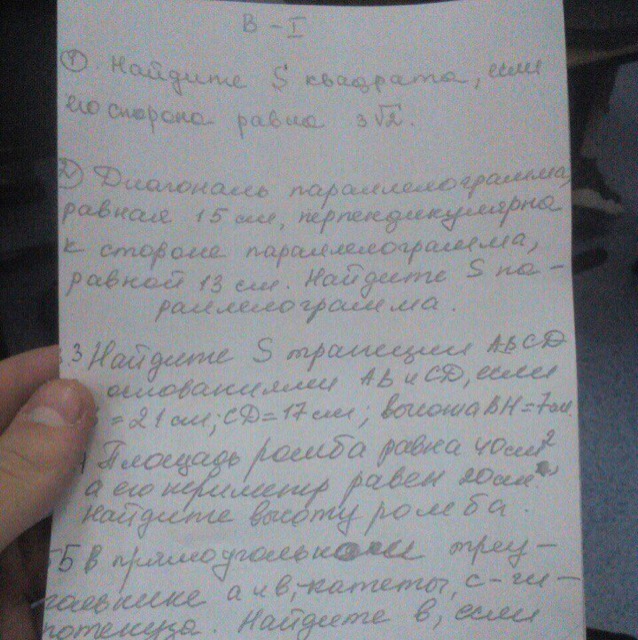 В - I
① Найдите S квадрата, если
его сторона равна 3√2.
2) Диагональ параллелограмма,
равная 15 см, перпендикулярна
к стороне параллелограмма,
равной 13 см. Найдите S па-
раллелограмма.
3 Найдите S трапеции ABCD
основаниями AB и CD, если
= 21 см; CD = 17 см; высота BH = 7 см
Площадь ромба равна 40 см²
а его периметр равен 20 см
Найдите высоту ромба.
5 В прямоугольном треу-
гольнике а и в, - катеты, с - ги-
потенуза. Найдите в, если